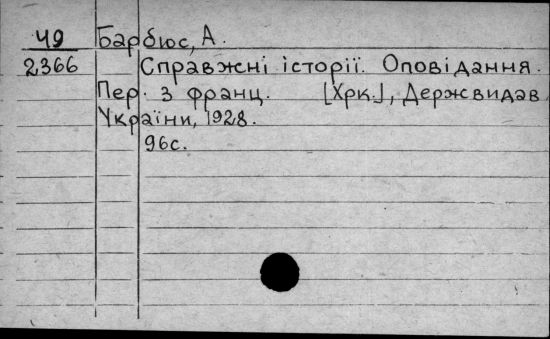 Ч9 Барбюс, А.
2366 Справжні історії. Оповідання.
Пер. з франц. [Хрк.], Держвидав
України, 1928.
96с.